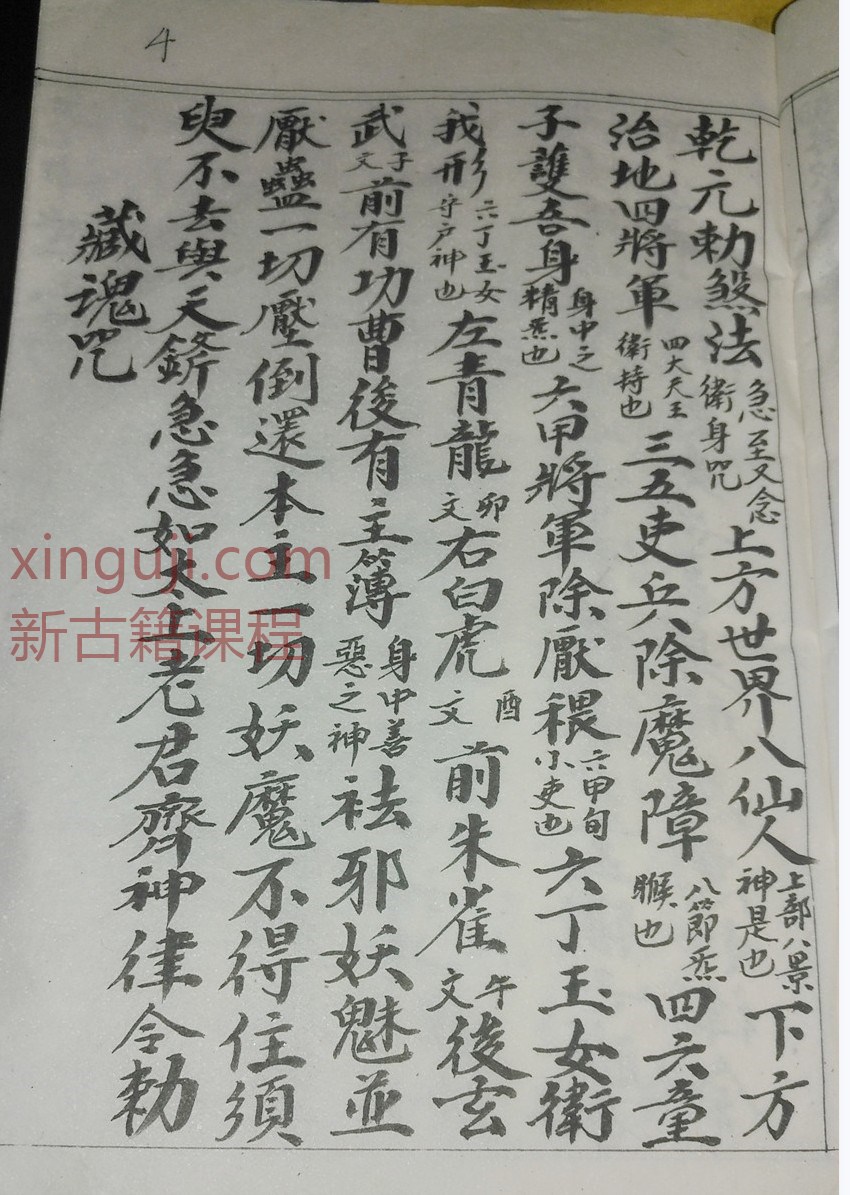 4
乾元勅煞法 急至又念衛身咒 上方世界八仙人 上部八景神是也 下方
治地四將軍 四大天王衛持也 三五吏兵除魔障 八節炁也 四六童
子護吾身 身中之精炁也 六甲將軍除厭穢 六甲旬小吏也 六丁玉女衛
我形 六丁玉女守户神也 左青龍 卯文 右白虎 酉文 前朱雀 午文 後玄
武 子文 前有功曹後有主簿 身中善惡之神 祛邪妖魅並
厭蠱一切壓倒還本主一切妖魔不得住須
臾不去與天斬急急如太上老君齊神律令勅
藏魂咒
xinguji.com
新古籍课程